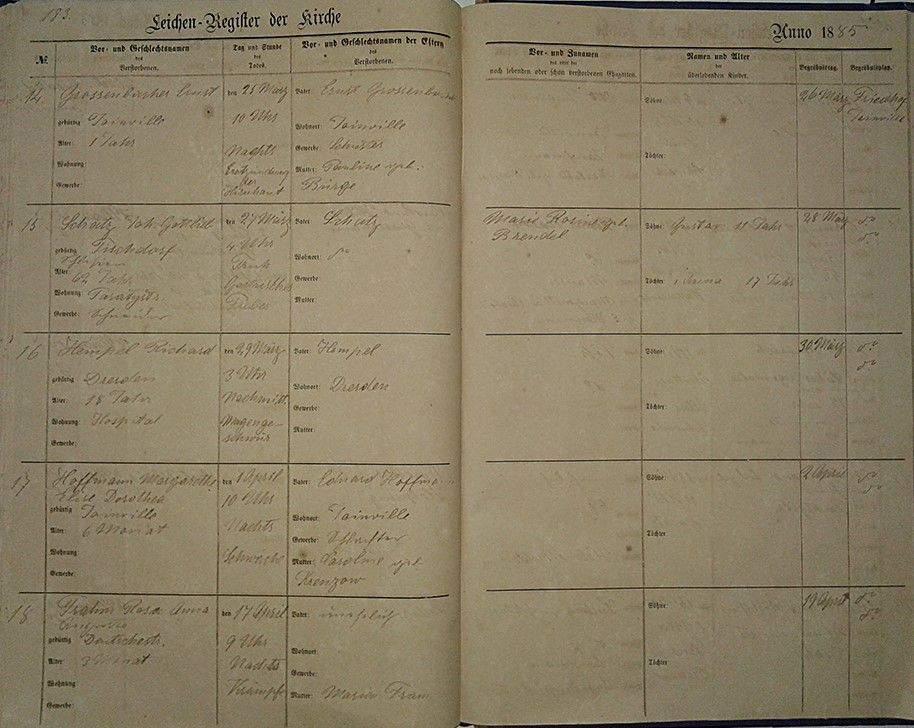 183.
Leichen-Register der Kirche
Anno 1885
№
Vor- und Geschlechtsnamen
des
Verstorbenen.
Tag und Stunde
des
Todes.
Vor- und Geschlechtsnamen der Eltern
des
Verstorbenen.
Vor- und Zunamen
des oder der
noch lebenden oder schon verstorbenen Ehegatten.
Namen und Alter
der
überlebenden Kinder.
Begräbnißtag.
Begräbnißplatz.
14
Grossenbacher Ernst
gebürtig Joinville
Alter: 1 Jahr
Wohnung:
Gewerbe:
den 25 März
10 Uhr
Nachts
Entzündung
der
Hirnhaut
Vater: Ernst Grossenbacher
Wohnort: Joinville
Gewerbe:
Mutter: Pauline geb.
Bürge
Söhne:
Töchter:
26 März
Friedhof
Joinville
15
Schatz Joh. Gottlieb
gebürtig Tischdorf
Alter: 62 Jahr
Wohnung:
Gewerbe: Schneider
den 27 März
4 Uhr
Früh
Fieber
Vater: Schatz
Wohnort: do
Gewerbe:
Mutter:
Marie Rosine geb.
Brendel
Söhne: Gustav 11 Jahr
Töchter: 17 Jahr
28 März
do
do
16
Hempel Richard
gebürtig Dresden
Alter: 18 Jahr
Wohnung: Hospital
Gewerbe:
den 29 März
3 Uhr
Nachmitt.
Magenge-
schwür
Vater: Hempel
Wohnort: Dresden
Gewerbe:
Mutter:
Söhne:
Töchter:
30 März
do
do
17
Hoffmann Margareth
Elise Dorothea
gebürtig Joinville
Alter: 6 Monat
Wohnung
Gewerbe:
den 1 April
10 Uhr
Nachts
Schwäche
Vater: Eduard Hoffmann
Wohnort: Joinville
Gewerbe:
Mutter: Caroline geb.
Krenzow
Söhne:
Töchter
2 April
do
do
18
Rosa Anna
gebürtig
Alter: 3 Monat
Wohnung
Gewerbe:
den 17 April
9 Uhr
Nachts
Krämpfe
Vater: unehelich
Wohnort:
Gewerbe:
Mutter: Maria
Söhne:
Töchter
19 April
do
do